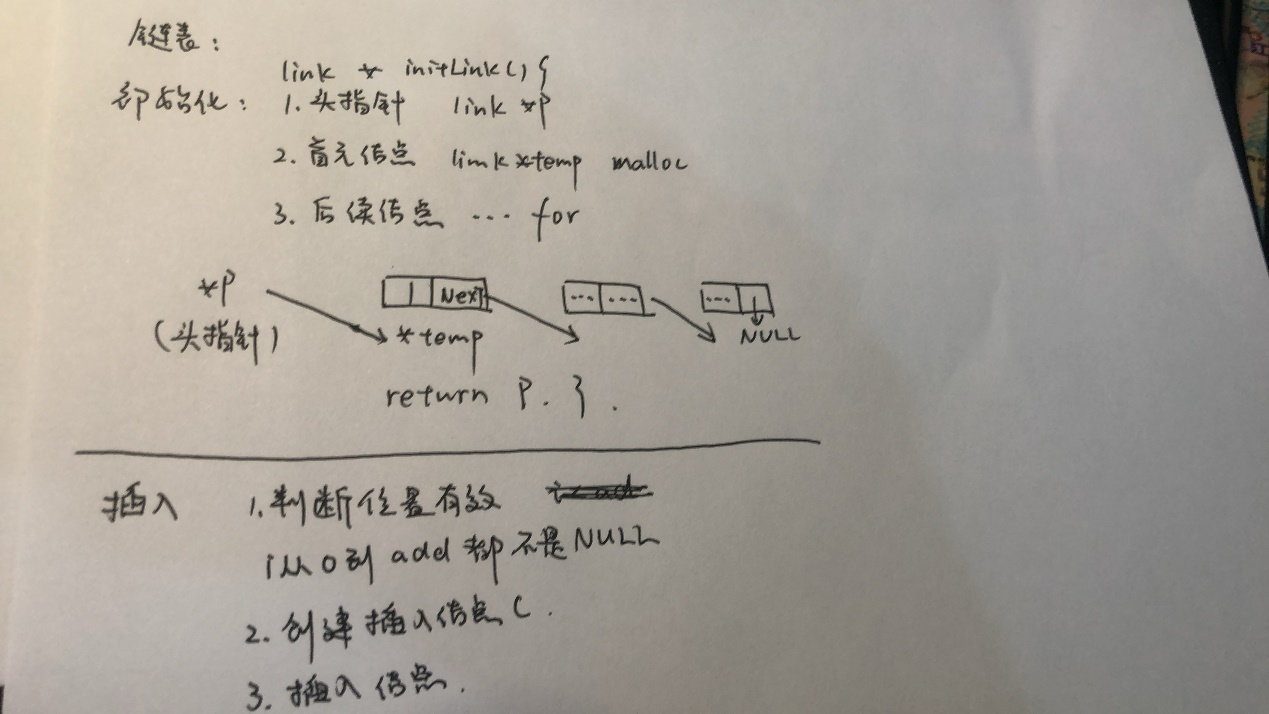 链表：
link * initLink() {
初始化： 1. 头指针 link *P
2. 首元结点 link *temp malloc
3. 后续结点 ... for
*P
(头指针)
1 Next
*temp
... ...
...
NULL
return P. }.
插入 1. 判断位置有效
i从0到 add 都不是NULL
2. 创建插入结点 C.
3. 插入结点.